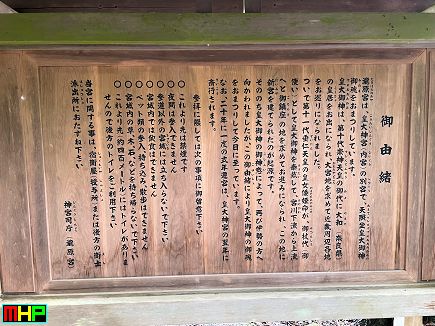 御由緒
瀧原宮は、「皇大神宮」内宮の別宮で、天照坐皇大御神
御魂をおまつりしています。
皇大御神は、第十代崇神天皇の御代に大和(奈良県)
の皇居をお出になられ、大宮地を求めて近畿周辺各地
をお巡りになられました。
ついで第十一代垂仁天皇の皇女倭姫命が、御杖代、御
使いとして皇大御神を奉戴して、宮川下流から上流
へと御鎮座の地を求めてお進みになられ、この地に
新宮を建てられたのが起源です。
そののち皇大御神の御神意によって、再び伊勢の方へ
向かわれましたが、この御由緒により皇大御神の御魂
をおまつりして今日に至っています。
なお、二十年に一度の式年遷宮は、皇大神宮の翌年に
斎行されます。
参拝に際しては次の事項に御留意下さい
○これより先は禁煙です
○夜間は参入できません
○参道以外の宮域には立ち入らないで下さい
○宮域内では飲食はできません
○ペット類の参入、持ち込み、散歩はできません
○宮域内の草、木、石、などを持ち帰らないで下さい
○これより先(約四百メートル)にはトイレがありま
せんので後方のトイレをご利用下さい
当宮に関する事は、宿衛屋(授与所)または後方の衛士
派出所におたずね下さい
神宮司庁(瀧原宮)
MHP